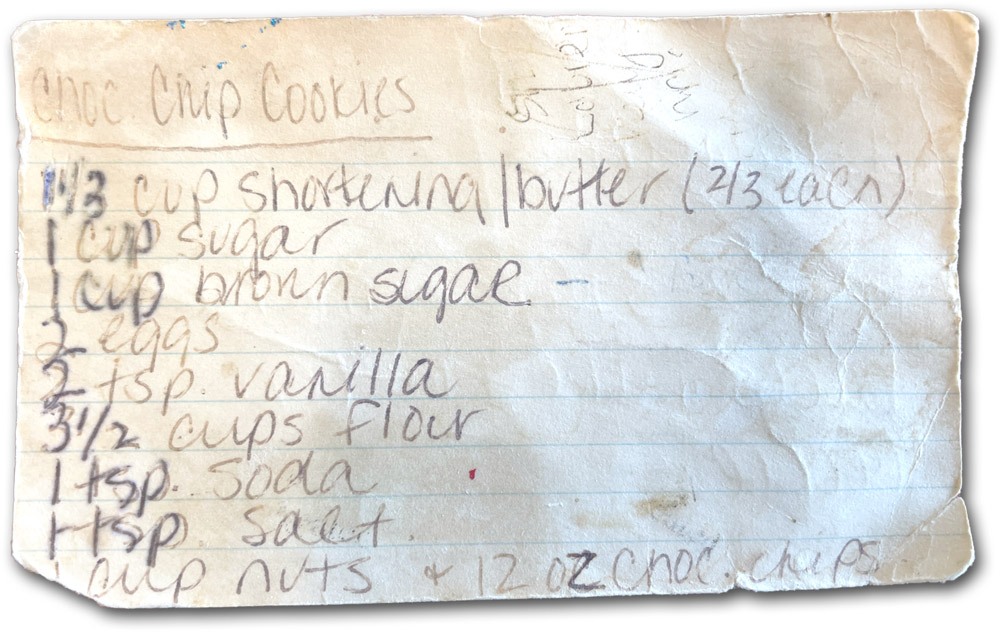 Choc. Chip Cookies
1 1/3 cup shortening/butter (2/3 each)
1 cup sugar
1 cup brown sugar -
2 eggs
2 tsp. vanilla
3 1/2 cups flour
1 tsp. soda
1 tsp. salt.
1 cup nuts + 12 oz choc. chips